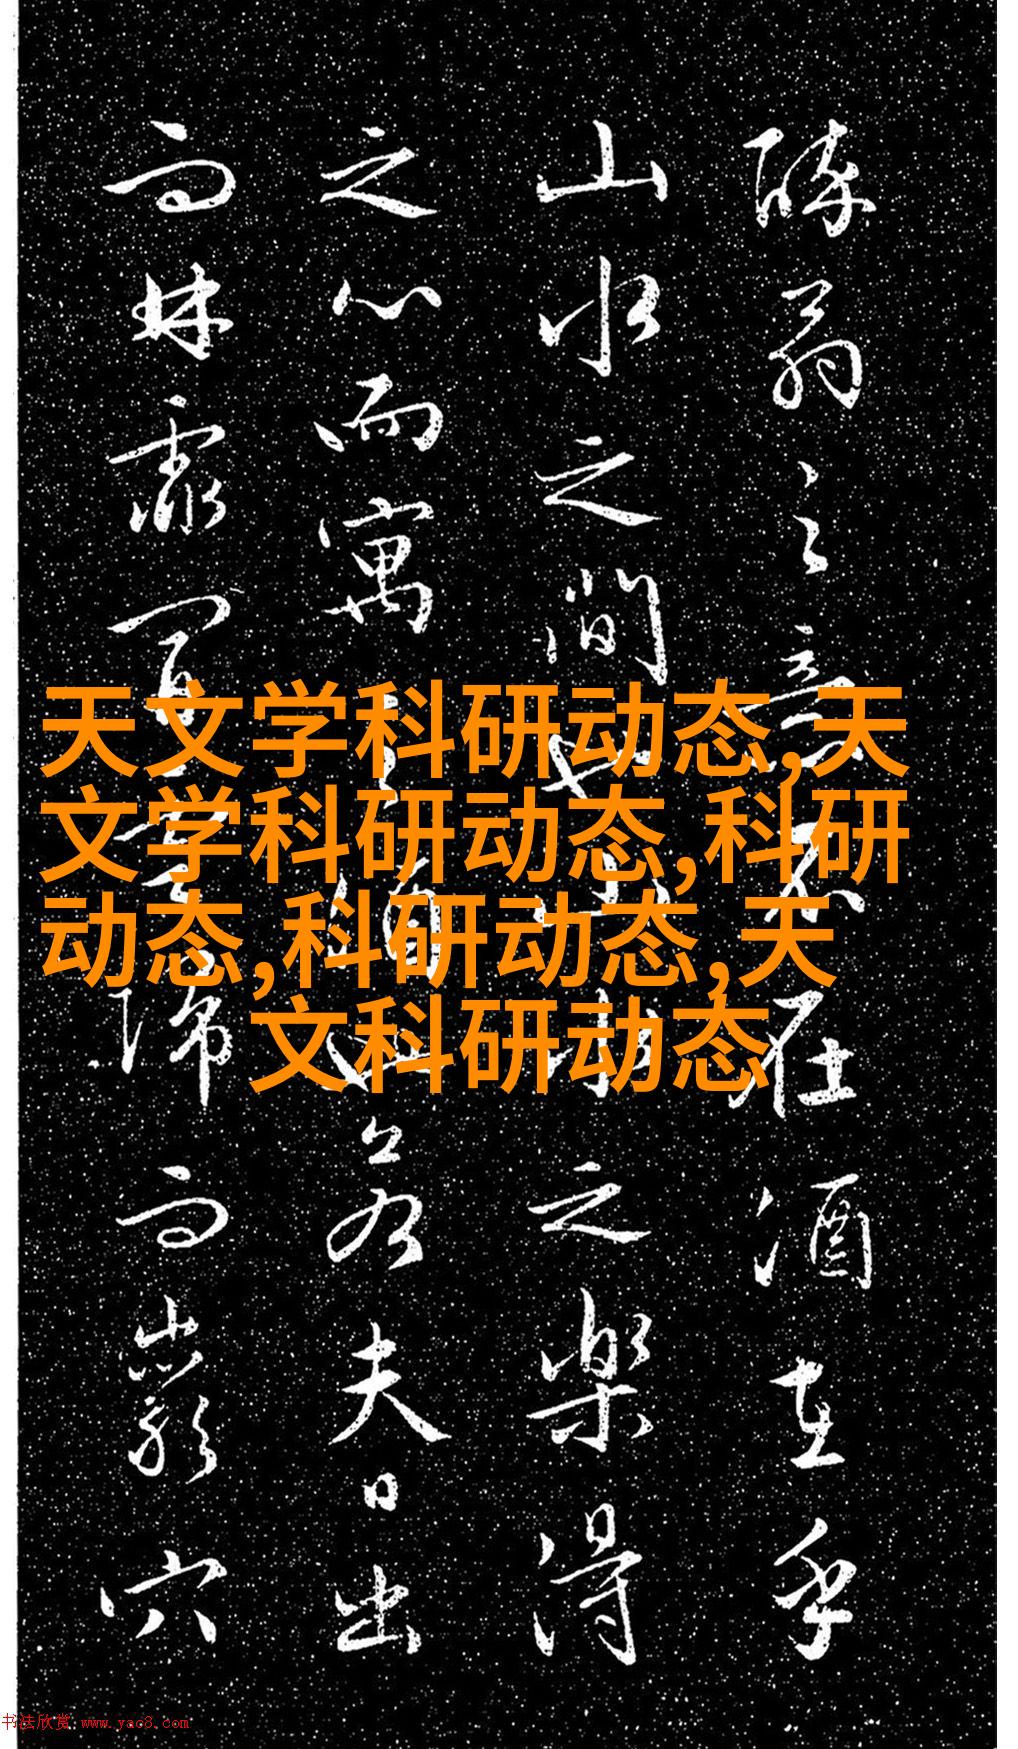 醉翁之意不在酒在乎
山水之間也山水之樂得
之心而寓之酒也若夫日出
而林霏開雲歸而巖穴
天文学科研动态,天
文学科研动态,科研
动态,科研动态,天
文科研动态
书法欣赏 www.yac8.com